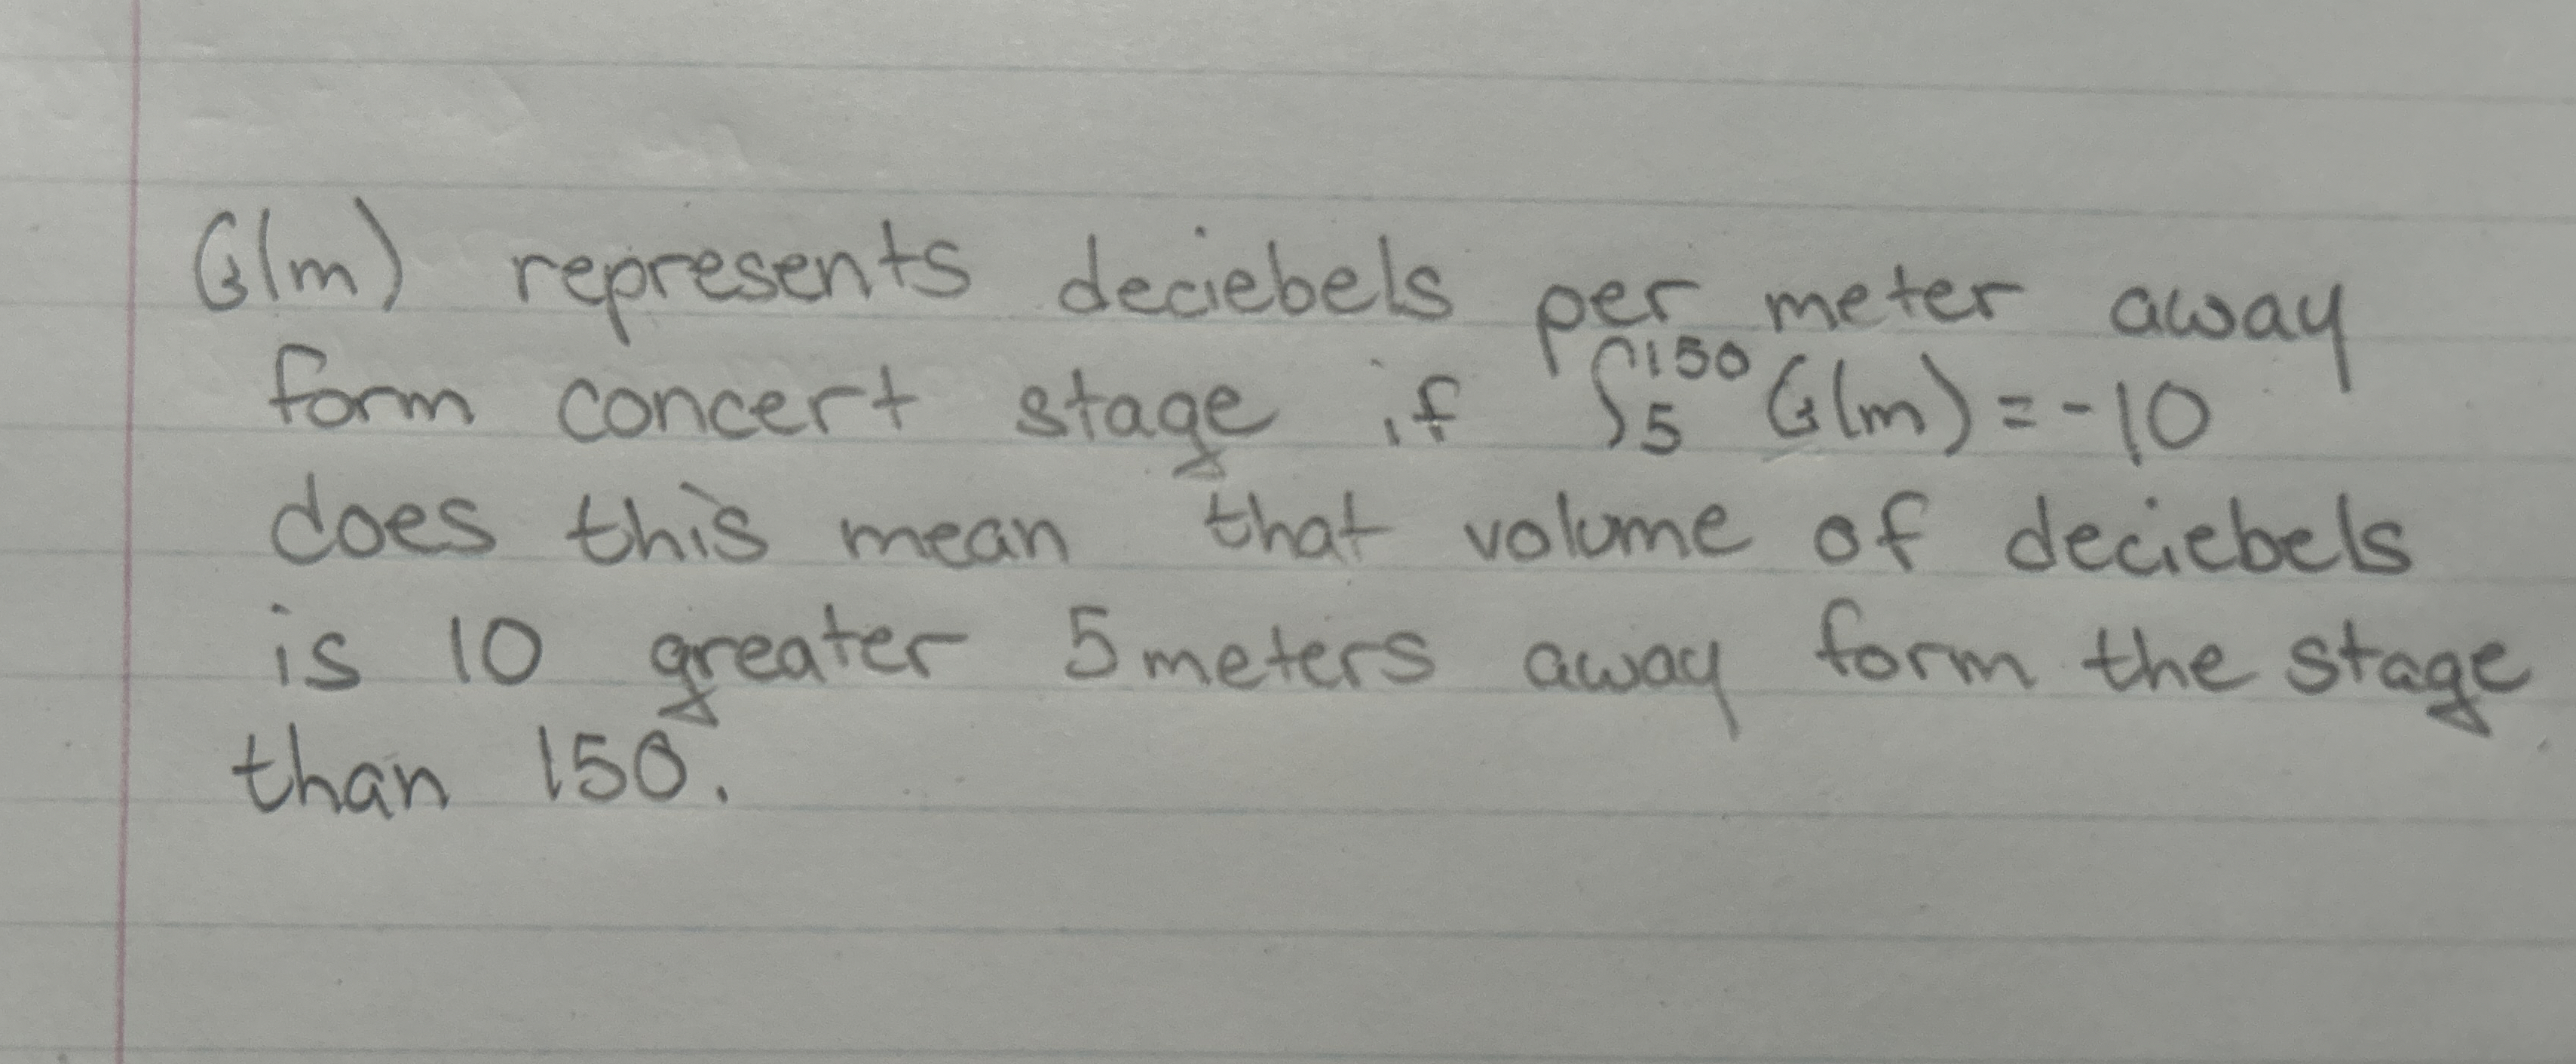 G(m) represents deciebels per meter away
form concert stage if ∫₅¹⁵⁰ G(m) = -10
does this mean that volume of deciebels
is 10 greater 5 meters away form the stage
than 150.